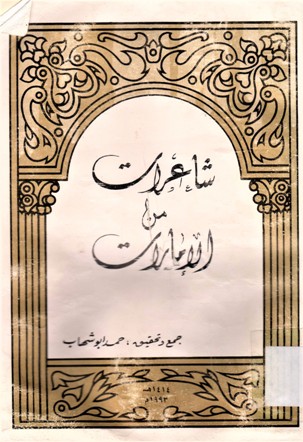 شاعرات
من
الإمارات
جمع وتحقيق: حمد أبو شهاب
١٤١٤هـ
١٩٩٣م